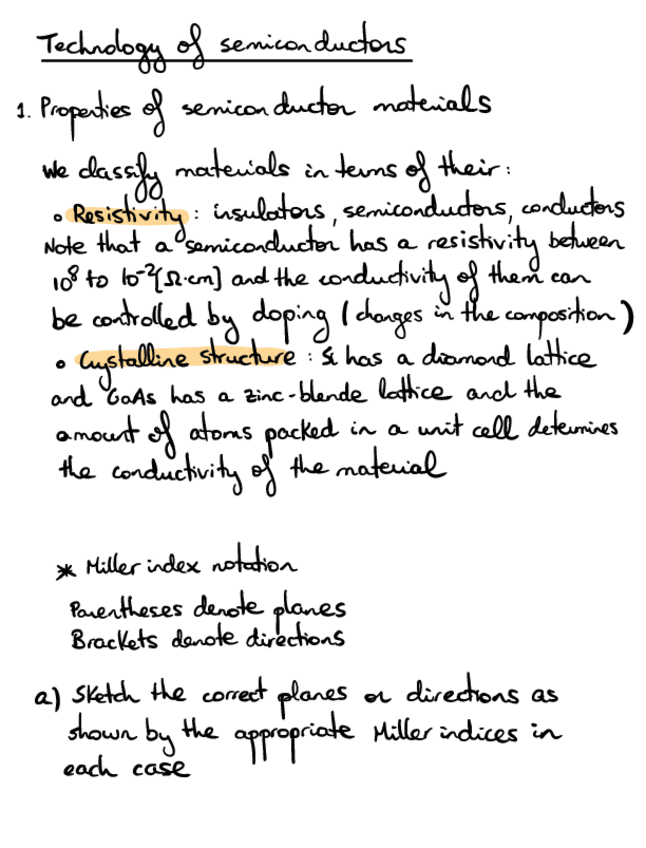 Technology of semiconductors
1. Properties of semiconductor materials
We classify materials in terms of their:
• Resistivity: insulators, semiconductors, conductors
Note that a semiconductor has a resistivity between
10⁸ to 10⁻²[Ω·cm] and the conductivity of them can
be controlled by doping (changes in the composition)
• Crystalline structure: Si has a diamond lattice
and GaAs has a zinc-blende lattice and the
amount of atoms packed in a unit cell determines
the conductivity of the material
* Miller index notation
Parentheses denote planes
Brackets denote directions
a) Sketch the correct planes or directions as
shown by the appropriate Miller indices in
each case